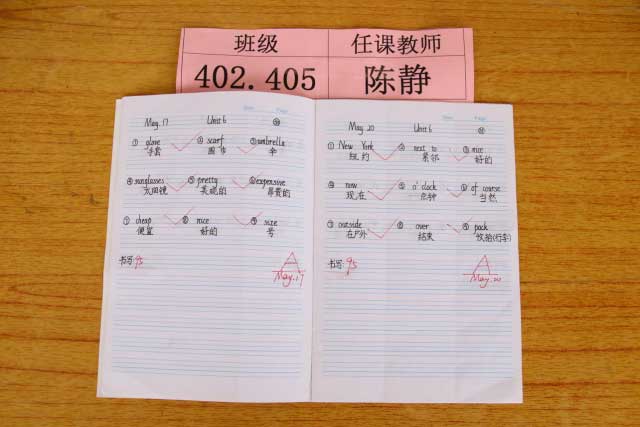 班级 任课教师
402.405 陈静
May. 17 Unit 6
① glove ② scarf ③ umbrella
手套 围巾 伞
④ sunglasses ⑤ pretty ⑥ expensive
太阳镜 美观的 昂贵的
⑦ cheap ⑧ nice ⑨ size
便宜 好的 号
书写: 95
A
May. 17
May 20 Unit 6
① New York ② next to ③ nice
纽约 紧邻 好的
④ now ⑤ o'clock ⑥ of course
现在 点钟 当然
⑦ outside ⑧ over ⑨ pack
在户外 结束 收拾(行李)
书写: 95
A
May. 20